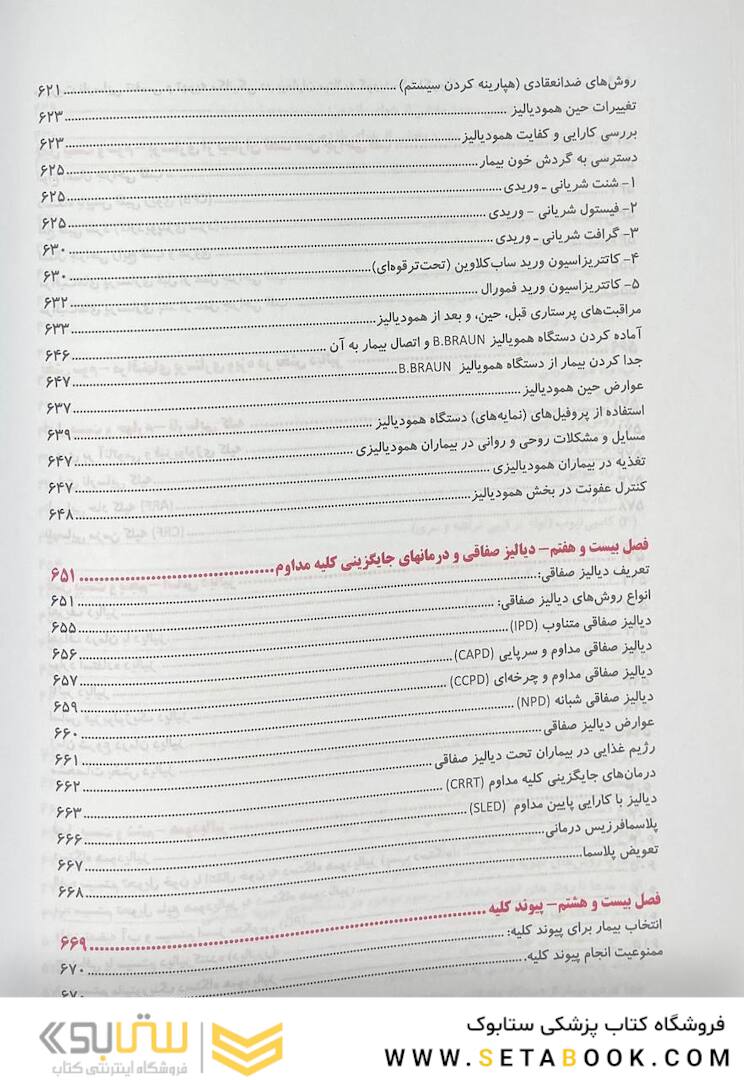 روش‌های ضدانعقادی (هپارینه کردن سیستم) ........ ۶۲۱
تغییرات حین همودیالیز ........ ۶۲۳
بررسی کارایی و کفایت همودیالیز ........ ۶۲۳
دسترسی به گردش خون بیمار ........ ۶۲۵
۱- شنت شریانی ـ وریدی ........ ۶۲۵
۲- فیستول شریانی - وریدی ........ ۶۲۵
۳- گرافت شریانی ـ وریدی ........ ۶۳۰
۴- کاتتریزاسیون ورید ساب‌کلاوین (تحت‌ترقوه‌ای) ........ ۶۳۰
۵- کاتتریزاسیون ورید فمورال ........ ۶۳۲
مراقبت‌های پرستاری قبل، حین، و بعد از همودیالیز ........ ۶۳۳
آماده کردن دستگاه همویالیز B.BRAUN و اتصال بیمار به آن ........ ۶۴۶
جدا کردن بیمار از دستگاه همویالیز B.BRAUN ........ ۶۴۷
عوارض حین همودیالیز ........ ۶۳۷
استفاده از پروفیل‌های (نمایه‌های) دستگاه همودیالیز ........ ۶۳۹
مسایل و مشکلات روحی و روانی در بیماران همودیالیزی ........ ۶۴۷
تغذیه در بیماران همودیالیزی ........ ۶۴۷
کنترل عفونت در بخش همودیالیز ........ ۶۴۸
فصل بیست و هفتم- دیالیز صفاقی و درمانهای جایگزینی کلیه مداوم ........ ۶۵۱
تعریف دیالیز صفاقی: ........ ۶۵۱
انواع روش‌های دیالیز صفاقی: ........ ۶۵۵
دیالیز صفاقی متناوب (IPD) ........ ۶۵۶
دیالیز صفاقی مداوم و سرپایی (CAPD) ........ ۶۵۷
دیالیز صفاقی مداوم و چرخه‌ای (CCPD) ........ ۶۵۹
دیالیز صفاقی شبانه (NPD) ........ ۶۶۰
عوارض دیالیز صفاقی ........ ۶۶۱
رژیم غذایی در بیماران تحت دیالیز صفاقی ........ ۶۶۲
درمان‌های جایگزینی کلیه مداوم (CRRT) ........ ۶۶۳
دیالیز با کارایی پایین مداوم (SLED) ........ ۶۶۶
پلاسمافرزیس درمانی ........ ۶۶۷
تعویض پلاسما ........ ۶۶۸
فصل بیست و هشتم- پیوند کلیه ........ ۶۶۹
انتخاب بیمار برای پیوند کلیه: ........ ۶۷۰
ممنوعیت انجام پیوند کلیه. ........ ۶۷۰
فروشگاه کتاب پزشکی ستابوک
WWW.SETABOOK.COM
ستابوک
فروشگاه اینترنتی کتاب